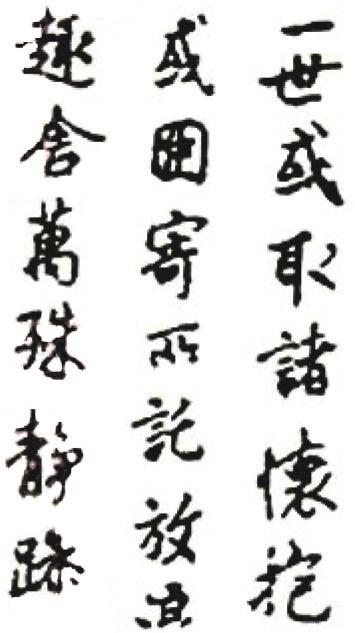 一世或取諸懷抱
或因寄所託放
趣舍萬殊靜躁